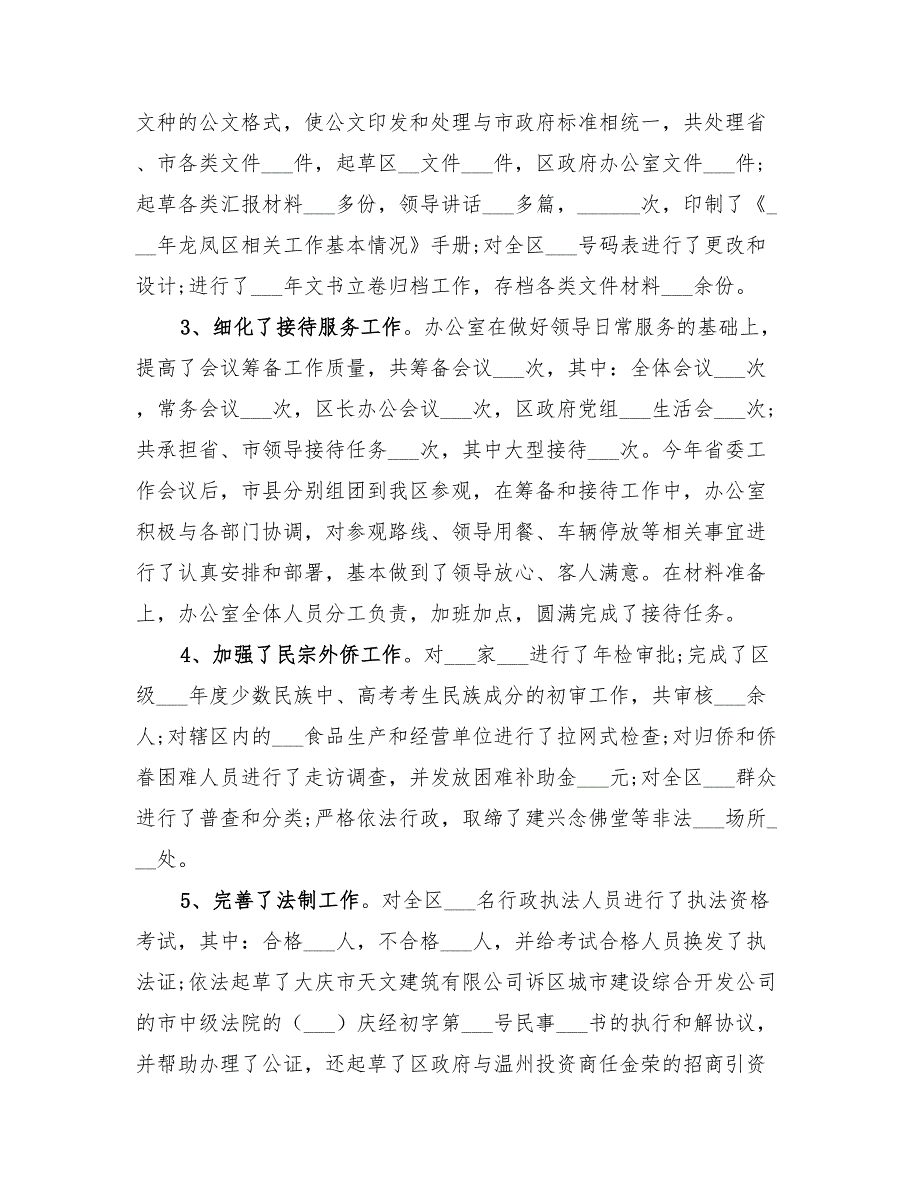 文种的公文格式，使公文印发和处理与市政府标准相统一，共处理省
、市各类文件___件，起草区__文件___件，区政府办公室文件___件;
起草各类汇报材料___多份，领导讲话___多篇，______次，印制了《_
__年龙凤区相关工作基本情况》手册;对全区___号码表进行了更改和
设计;进行了___年文书立卷归档工作，存档各类文件材料___余份。
3、细化了接待服务工作。办公室在做好领导日常服务的基础上，
提高了会议筹备工作质量，共筹备会议___次，其中：全体会议___次
，常务会议___次，区长办公会议___次，区政府党组___生活会___次;
共承担省、市领导接待任务___次，其中大型接待___次。今年省委工
作会议后，市县分别组团到我区参观，在筹备和接待工作中，办公室
积极与各部门协调，对参观路线、领导用餐、车辆停放等相关事宜进
行了认真安排和部署，基本做到了领导放心、客人满意。在材料准备
上，办公室全体人员分工负责，加班加点，圆满完成了接待任务。
4、加强了民宗外侨工作。对___家___进行了年检审批;完成了区
级___年度少数民族中、高考考生民族成分的初审工作，共审核___余
人;对辖区内的___食品生产和经营单位进行了拉网式检查;对归侨和侨
眷困难人员进行了走访调查，并发放困难补助金___元;对全区___群众
进行了普查和分类;严格依法行政，取缔了建兴念佛堂等非法___场所_
__处。
5、完善了法制工作。对全区___名行政执法人员进行了执法资格
考试，其中：合格___人，不合格___人，并给考试合格人员换发了执
法证;依法起草了大庆市天文建筑有限公司诉区城市建设综合开发公司
的市中级法院的（___）庆经初字第___号民事___书的执行和解协议，
并帮助办理了公证，还起草了区政府与温州投资商任金荣的招商引资